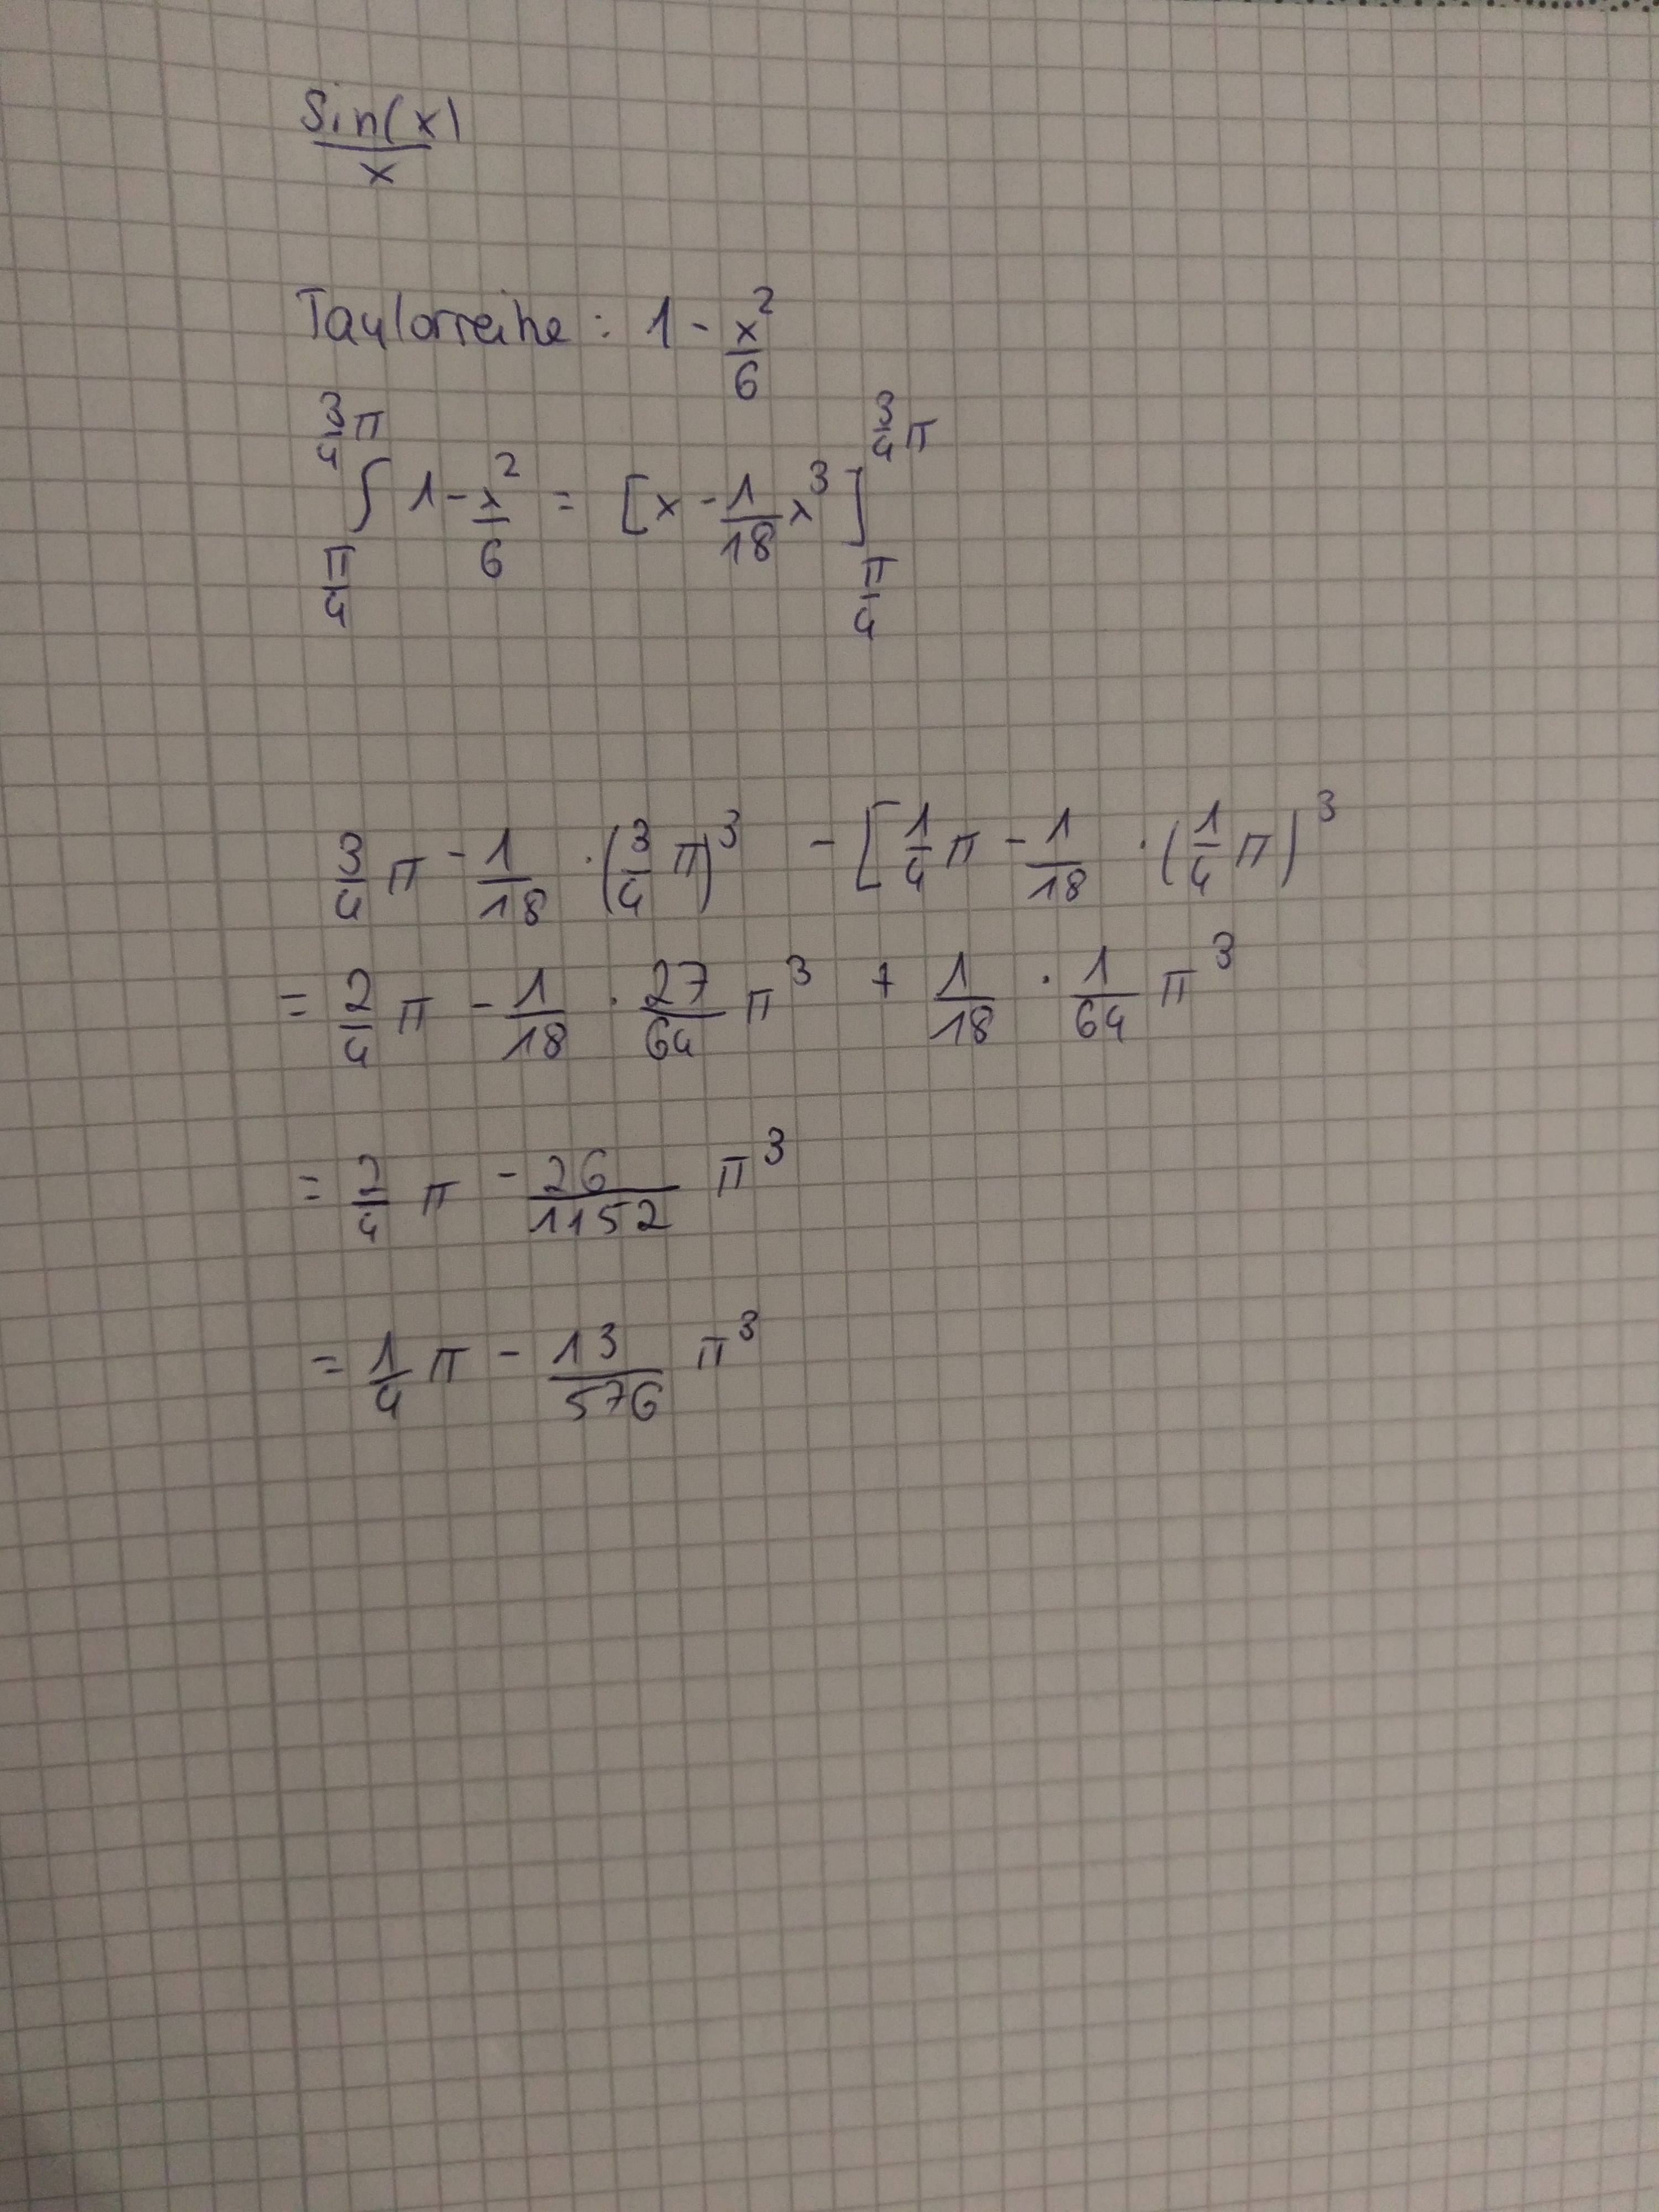 Sin(x)/x
Taylorreihe: 1 - x²/6
∫_{π/4}^{3/4 π} 1 - x²/6 = [x - 1/18 x³]_{π/4}^{3/4 π}
3/4 π - 1/18 · (3/4 π)³ - [1/4 π - 1/18 · (1/4 π)³
= 2/4 π - 1/18 · 27/64 π³ + 1/18 · 1/64 π³
= 2/4 π - 26/1152 π³
= 1/4 π - 13/576 π³